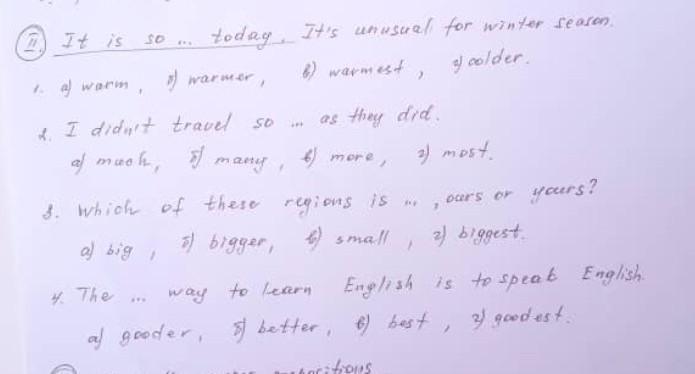 II. It is so ... today. It's unusual for winter season.
1. а) warm, б) warmer, в) warmest, г) colder.
2. I didn't travel so ... as they did.
а) much, б) many, в) more, г) most.
3. Which of these regions is ..., ours or yours?
а) big, б) bigger, в) small, г) biggest.
4. The ... way to learn English is to speak English.
а) gooder, б) better, в) best, г) goodest.